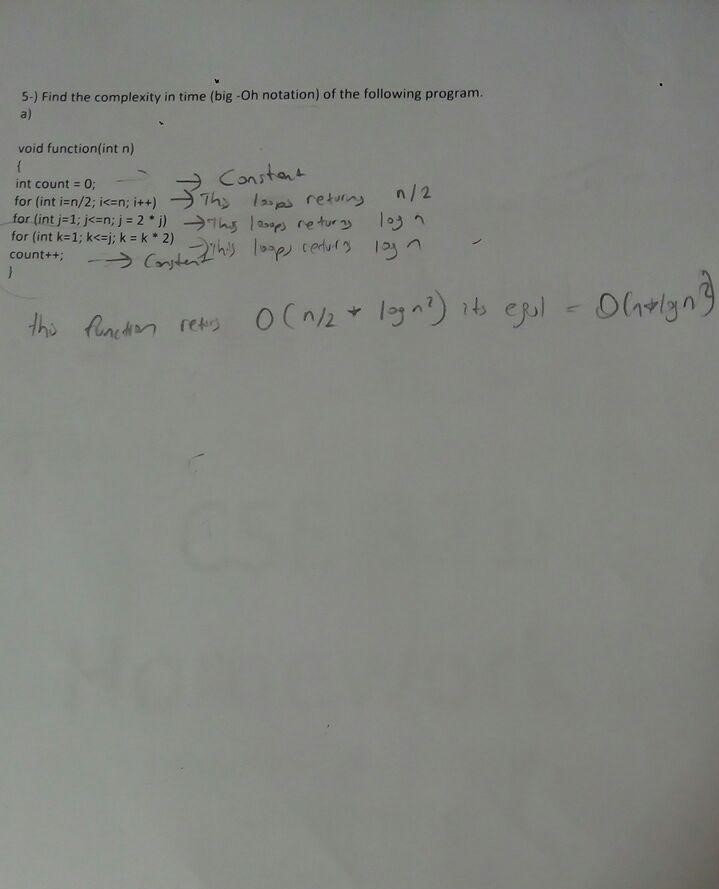 5-) Find the complexity in time (big -Oh notation) of the following program.
a)
void function(int n)
{
int count = 0; → Constant
for (int i=n/2; i<=n; i++) → This loops returns n/2
for (int j=1; j<=n; j = 2 * j) → This loops returns log n
for (int k=1; k<=j; k = k * 2) → This loops returns log n
count++; → Constant
}
this function returs O(n/2 * log n²) its equl = O(n*lgn²)
CSE
Homework